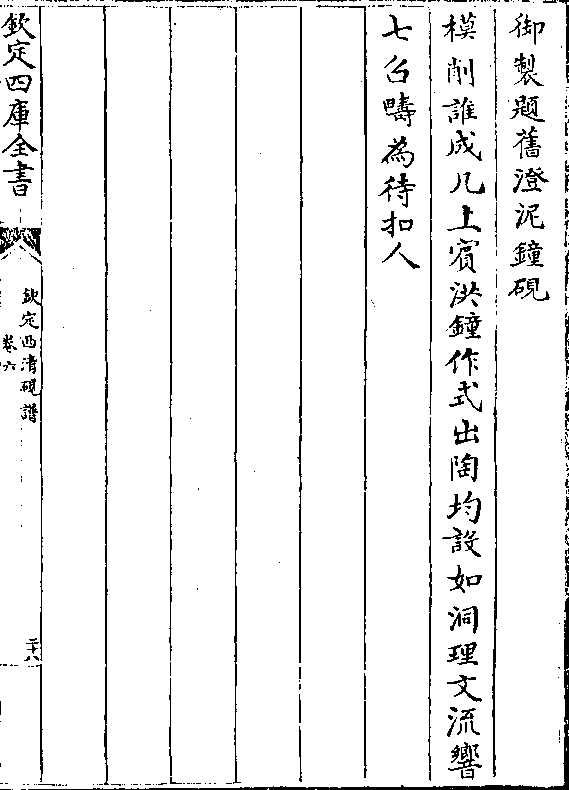 御製題舊澄泥鐘硯
模削誰成几上賔洪鐘作式出陶均設如洞理文流響
七㕣疇為待扣人
欽定四庫全書
欽定西清硯譜
卷六
二十八